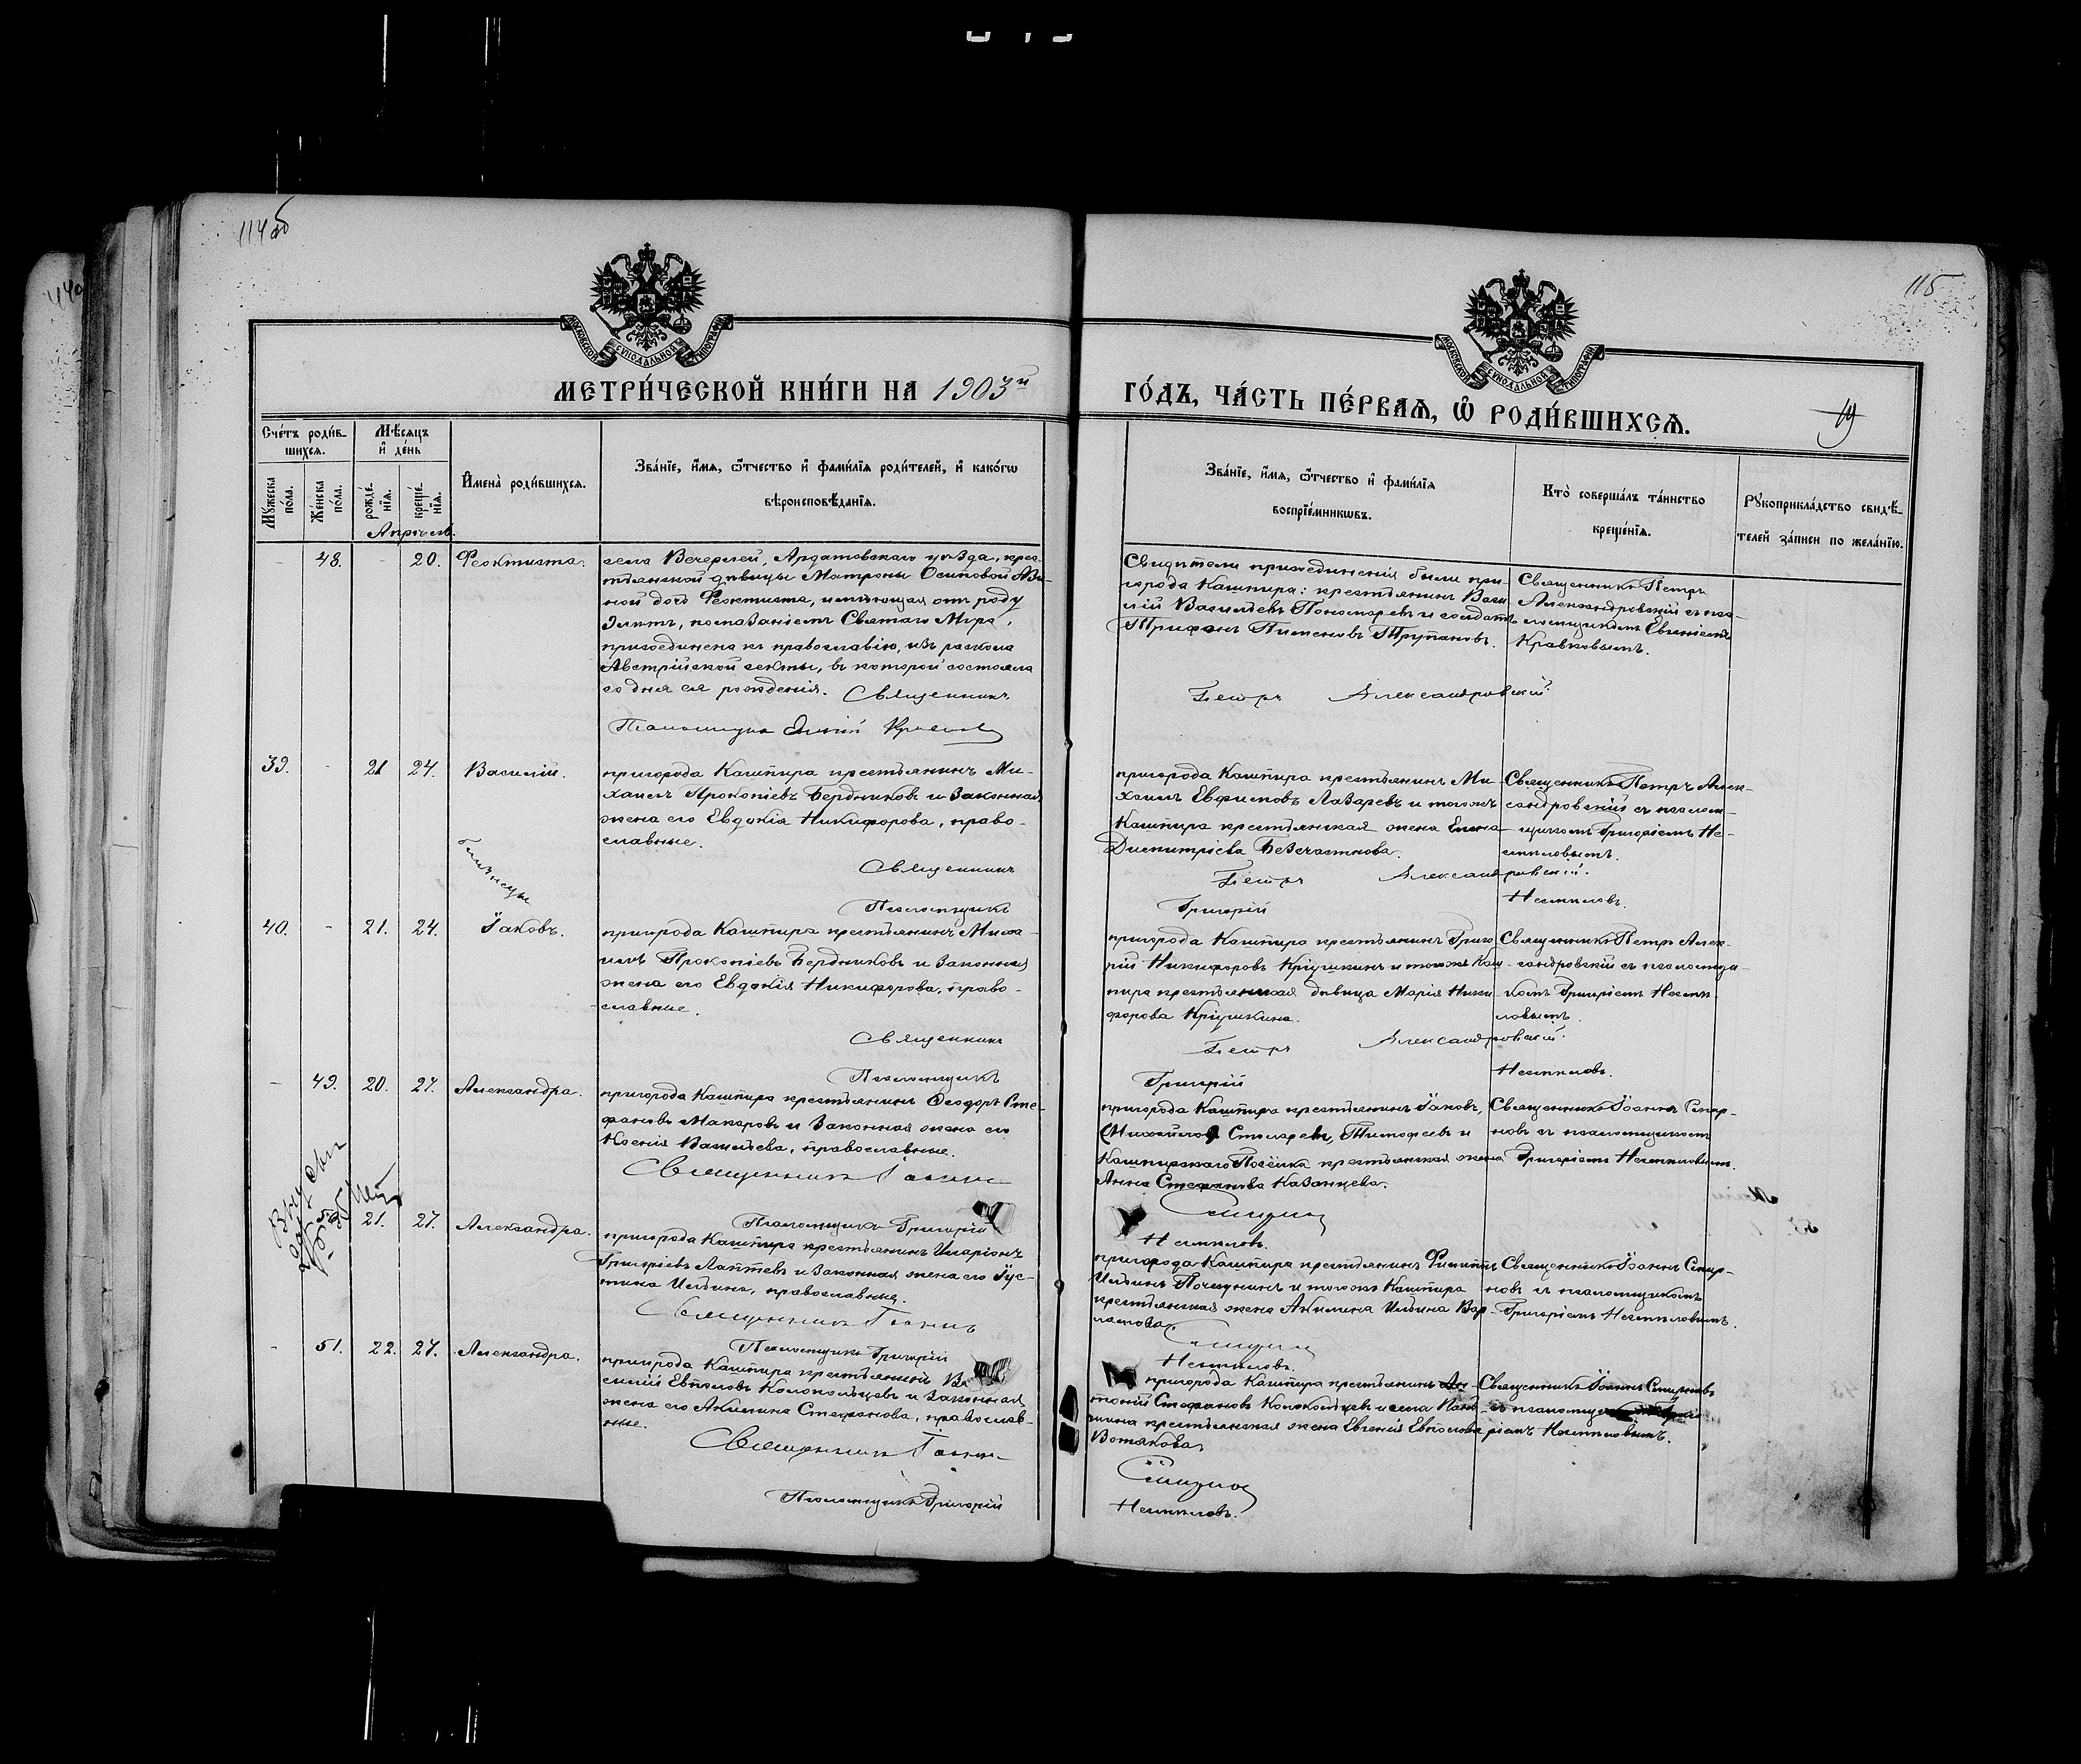 114 об
115
МОСКОВСКОЙ СѴНОДАЛЬНОЙ ТИПОГРАФІИ
МОСКОВСКОЙ СѴНОДАЛЬНОЙ ТИПОГРАФІИ
МЕТРИ́ЧЕСКОЙ КНИ́ГИ НА 1903й
ГО́ДЪ, ЧА́СТЬ ПЕ́РВАѦ, Ѡ҆ РОДИ́ВШИХСѦ.
19
Сче́тъ роди́в-
шихсѧ.
Мꙋжеска по́ла.
Же́нска по́ла.
Мѣ́сѧцъ
и҆ де́нь
рожде́-
нїѧ.
креще́-
нїѧ.
И҆мена̀ роди́вшихсѧ.
Зва́нїе, и҆́мѧ, ѻ҆́тчество и҆ фами́лїѧ роди́телей, и҆ како́гѡ
вѣроисповѣ́данїѧ.
Зва́нїе, и҆́мѧ, ѻ҆́тчество и҆ фами́лїѧ
воспрїе́мникѡвъ.
Кто̀ соверша́лъ та́инство
креще́нїѧ.
Рꙋкоприкла́дство свидѣ́-
телей за́писи по жела́нїю.
Апрѣль.
- 48. - 20. Феоктиста.
села Вечерлей, Ардатовскаго уѣзда, крес-
тьянской дѣвицы Матроны Осиповой
ной дочь Феоктиста, имѣющая отъ роду
лѣтъ, помазаніемъ Святаго Мѵра,
присоединена къ православію, изъ раскола
Австрійской секты, въ которой состояла
со дня ея рожденія. Священникъ
Псаломщикъ
Свидѣтели присоединенія были при-
города Кашпира: крестьянинъ Васи
лій Васильевъ Пономаревъ и солдатъ
Трифонъ Пименовъ Трупановъ.
Петръ Александровскій.
Священникъ Петръ
Александровскій съ пса-
ломщикомъ Евгеніемъ
Кравковымъ.
39. - 21 24. Василій.
пригорода Кашпира крестьянинъ Ми-
хаилъ Прокопіевъ Бердниковъ и законная
жена его Евдокія Никифорова, право-
славные.
Священникъ
Псаломщикъ
пригорода Кашпира крестьянинъ Ми-
хаилъ Евфимовъ Лазаревъ и тогожъ
Кашпира крестьянская жена Елена
Димитріева Безчастнова.
Петръ Александровскій.
Григорій Несмѣловъ.
Священникъ Петръ Алек-
сандровскій съ псалом-
щикомъ Григоріемъ Не-
смѣловымъ.
близнецы
40. - 21. 24. Іаковъ.
пригорода Кашпира крестьянинъ Миха-
илъ Прокопіевъ Бердниковъ и законная
жена его Евдокія Никифорова, право-
славные.
Священникъ
Псаломщикъ
пригорода Кашпира крестьянинъ Григо
рій Никифоровъ Кріушкинъ и тогоже Каш-
пира крестьянская дѣвица Марія Ники-
форова Кріушкина.
Петръ Александровскій.
Григорій Несмѣловъ.
Священникъ Петръ Алек-
сандровскій съ псаломщи-
комъ Григоріемъ Несмѣ-
ловымъ.
- 49. 20. 27. Александра.
пригорода Кашпира крестьянинъ Ѳеодоръ Сте-
фановъ Макаровъ и законная жена его
Ксенія Васильева, православные.
Священникъ Іоаннъ
Псаломщикъ Григорій
пригорода Кашпира крестьянинъ Іаковъ,
Столяревъ, Тимофеевъ и
Кашпирскаго Посёлка крестьянская жена
Анна Стефанова Казанцева.
Смирнов
Несмѣловъ.
Священникъ Іоаннъ Смир-
новъ съ псаломщикомъ
Григоріемъ Несмѣловымъ.
21. 27. Александра.
пригорода Кашпира крестьянинъ Иларіонъ
Григоріевъ Лаптевъ и законная жена его Іус-
тина Ильина, православные.
Священникъ Іоаннъ
Псаломщикъ Григорій
пригорода Кашпира крестьянинъ Филиппъ
Ильинъ и тогожъ Кашпира
крестьянская жена Акилина Ильина Вар-
ламова.
Смирнов
Несмѣловъ.
Священникъ Іоаннъ Смир-
новъ съ псаломщикомъ
Григоріемъ Несмѣловымъ.
- 51. 22. 27. Александра.
пригорода Кашпира крестьянинъ Ва
силій Евпловъ Колокольцевъ и законная
жена его Акилина Стефанова, православ-
ные.
Священникъ Іоаннъ
Псаломщикъ Григорій
пригорода Кашпира крестьянинъ Ан-
тоній Стефановъ Колокольцевъ и села
крестьянская жена Евгенія Евплова
Вотякова.
Смирнов
Несмѣловъ.
Священникъ Іоаннъ Смирновъ
съ псаломщи
ріемъ Несмѣловымъ.